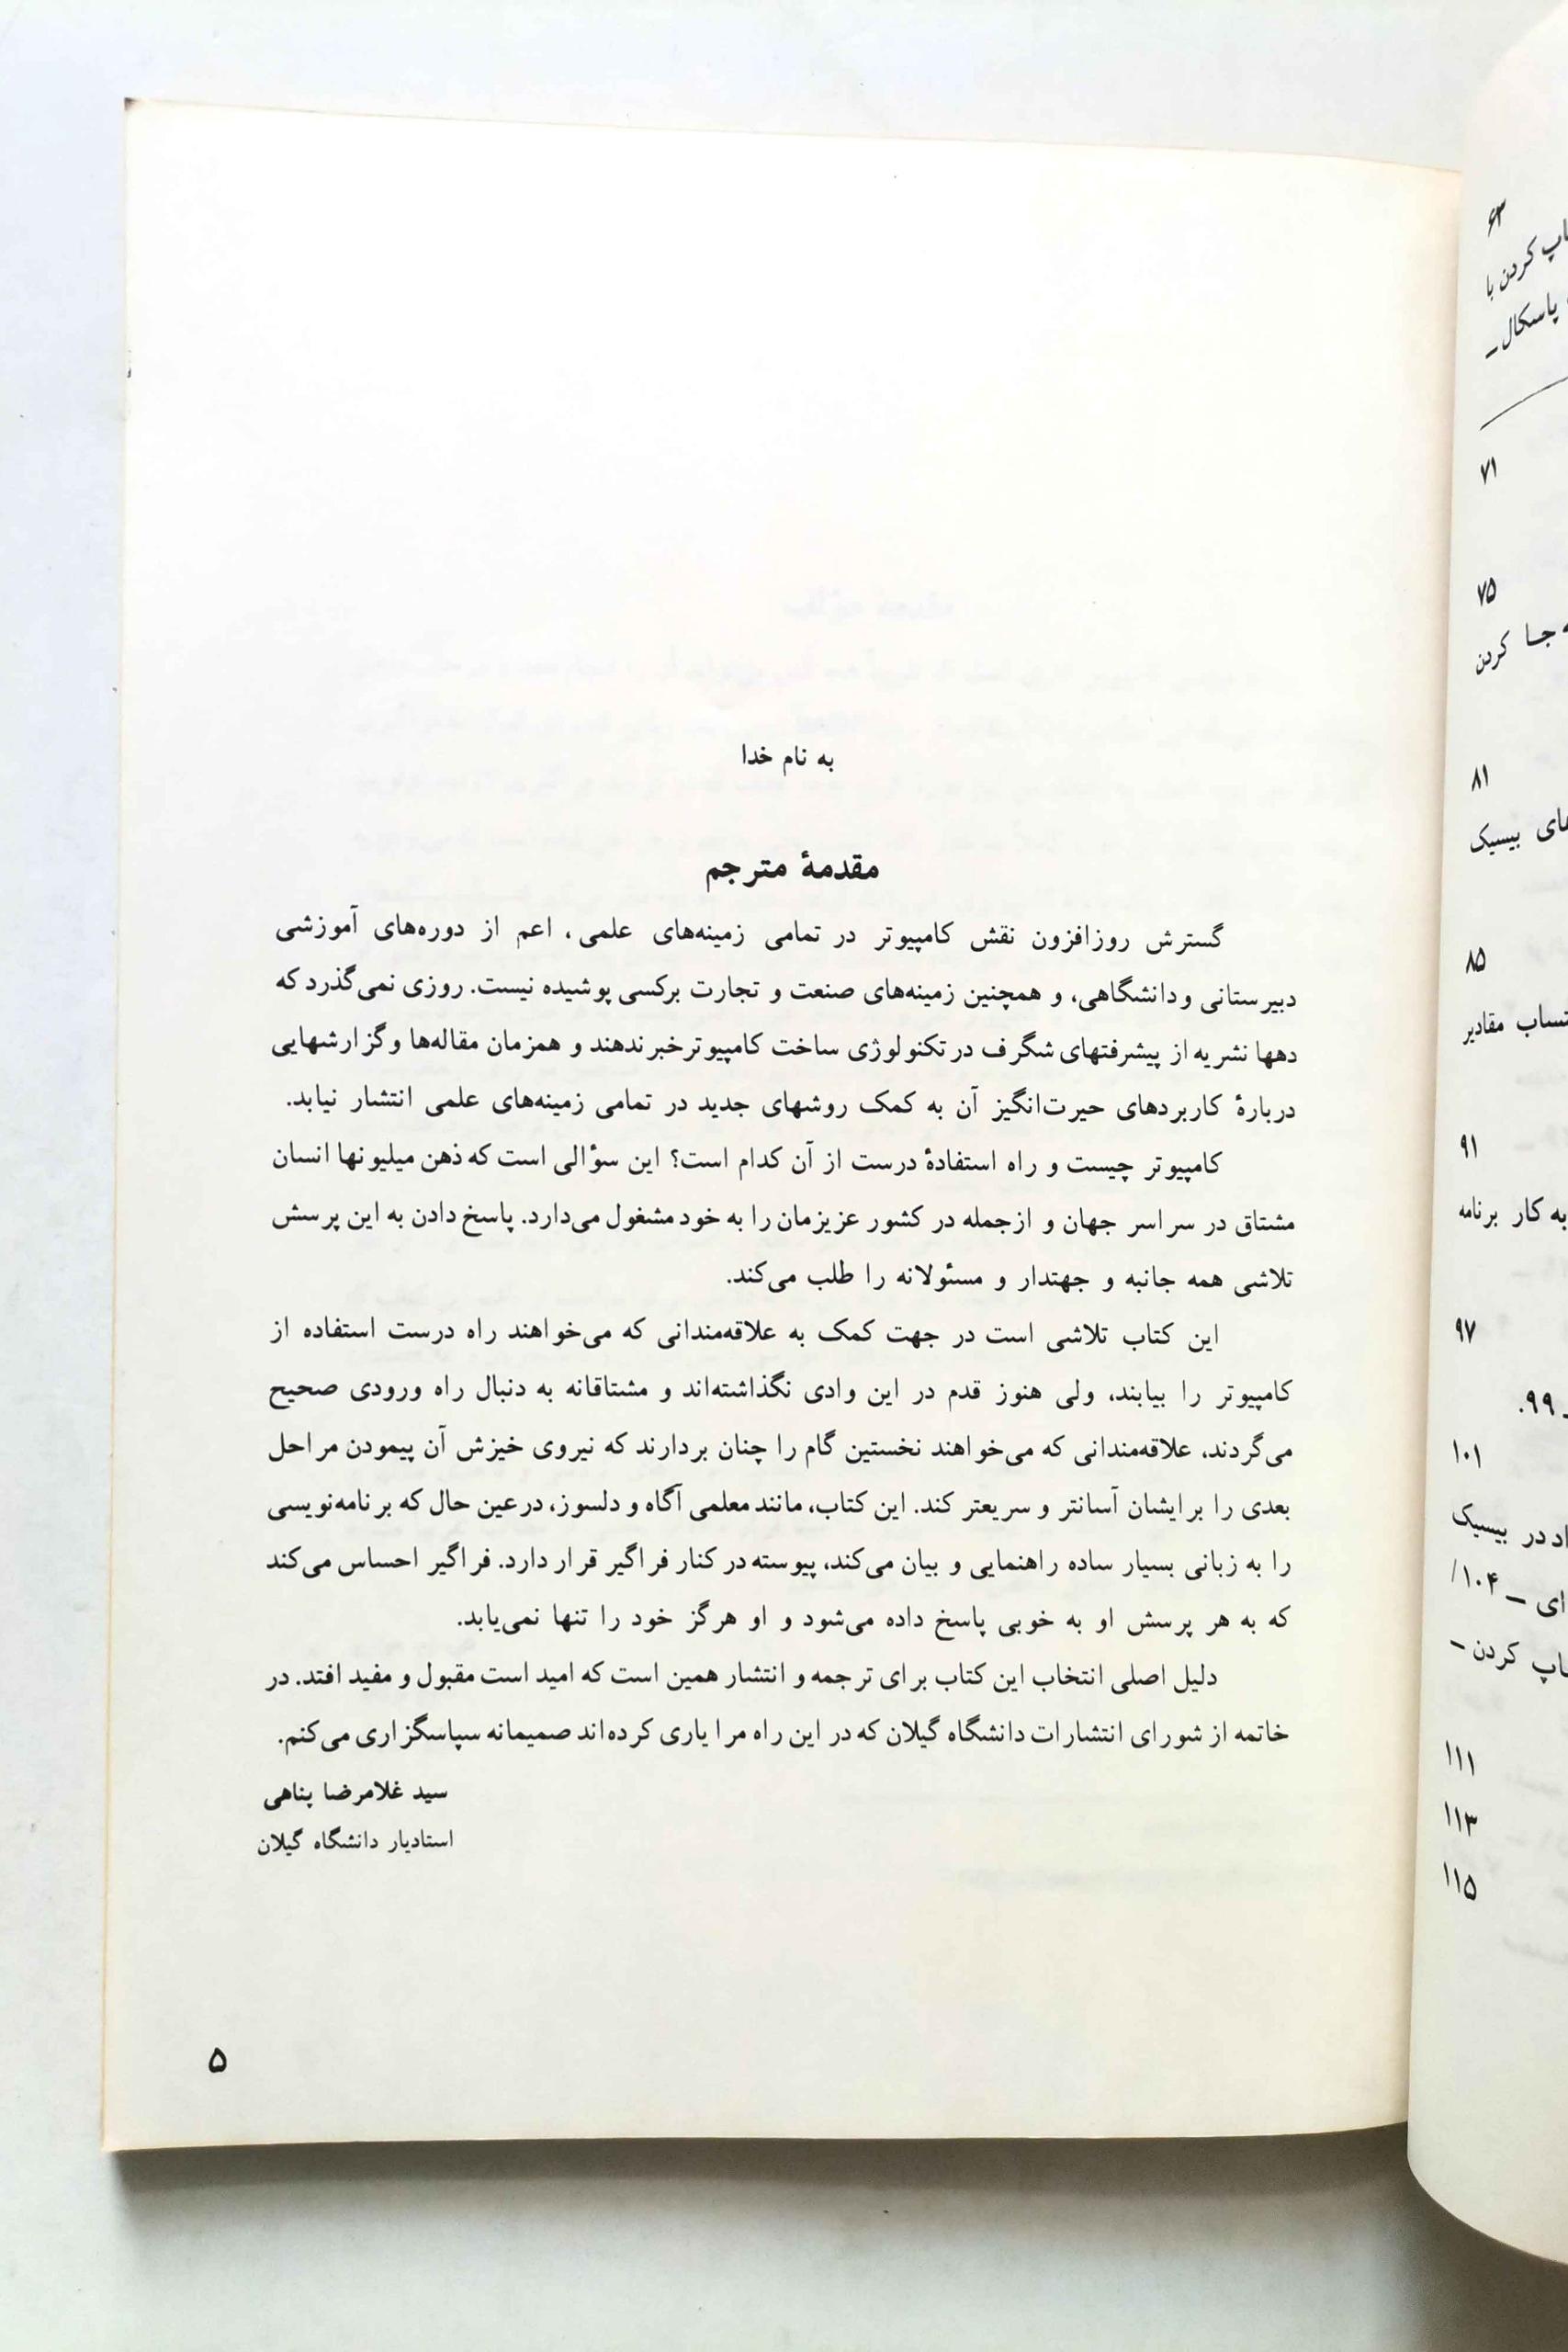 به نام خدا
مقدمهٔ مترجم
گسترش روزافزون نقش کامپیوتر در تمامی زمینه‌های علمی، اعم از دوره‌های آموزشی
دبیرستانی و دانشگاهی، و همچنین زمینه‌های صنعت و تجارت برکسی پوشیده نیست. روزی نمی‌گذرد که
دهها نشریه از پیشرفتهای شگرف در تکنولوژی ساخت کامپیوتر خبر ندهند و همزمان مقاله‌ها و گزارشهایی
دربارهٔ کاربردهای حیرت‌انگیز آن به کمک روشهای جدید در تمامی زمینه‌های علمی انتشار نیابد.
کامپیوتر چیست و راه استفادهٔ درست از آن کدام است؟ این سؤالی است که ذهن میلیونها انسان
مشتاق در سراسر جهان و ازجمله در کشور عزیزمان را به خود مشغول می‌دارد. پاسخ دادن به این پرسش
تلاشی همه جانبه و جهتدار و مسئولانه را طلب می‌کند.
این کتاب تلاشی است در جهت کمک به علاقه‌مندانی که می‌خواهند راه درست استفاده از
کامپیوتر را بیابند، ولی هنوز قدم در این وادی نگذاشته‌اند و مشتاقانه به دنبال راه ورودی صحیح
می‌گردند، علاقه‌مندانی که می‌خواهند نخستین گام را چنان بردارند که نیروی خیزش آن پیمودن مراحل
بعدی را برایشان آسانتر و سریعتر کند. این کتاب، مانند معلمی آگاه و دلسوز، درعین حال که برنامه‌نویسی
را به زبانی بسیار ساده راهنمایی و بیان می‌کند، پیوسته در کنار فراگیر قرار دارد. فراگیر احساس می‌کند
که به هر پرسش او به خوبی پاسخ داده می‌شود و او هرگز خود را تنها نمی‌یابد.
دلیل اصلی انتخاب این کتاب برای ترجمه و انتشار همین است که امید است مقبول و مفید افتد. در
خاتمه از شورای انتشارات دانشگاه گیلان که در این راه مرا یاری کرده‌اند صمیمانه سپاسگزاری می‌کنم.
سید غلامرضا پناهی
استادیار دانشگاه گیلان
۵
۶۳
کردن با
پاسکال –
۷۱
۷۵
جا کردن
۸۱
بیسیک
۸۵
مقادیر
۹۱
به کار برنامه
۹۷
۹۹.
۱۰۱
در بیسیک
ای – ۱۰۴/
کردن –
۱۱۱
۱۱۳
۱۱۵